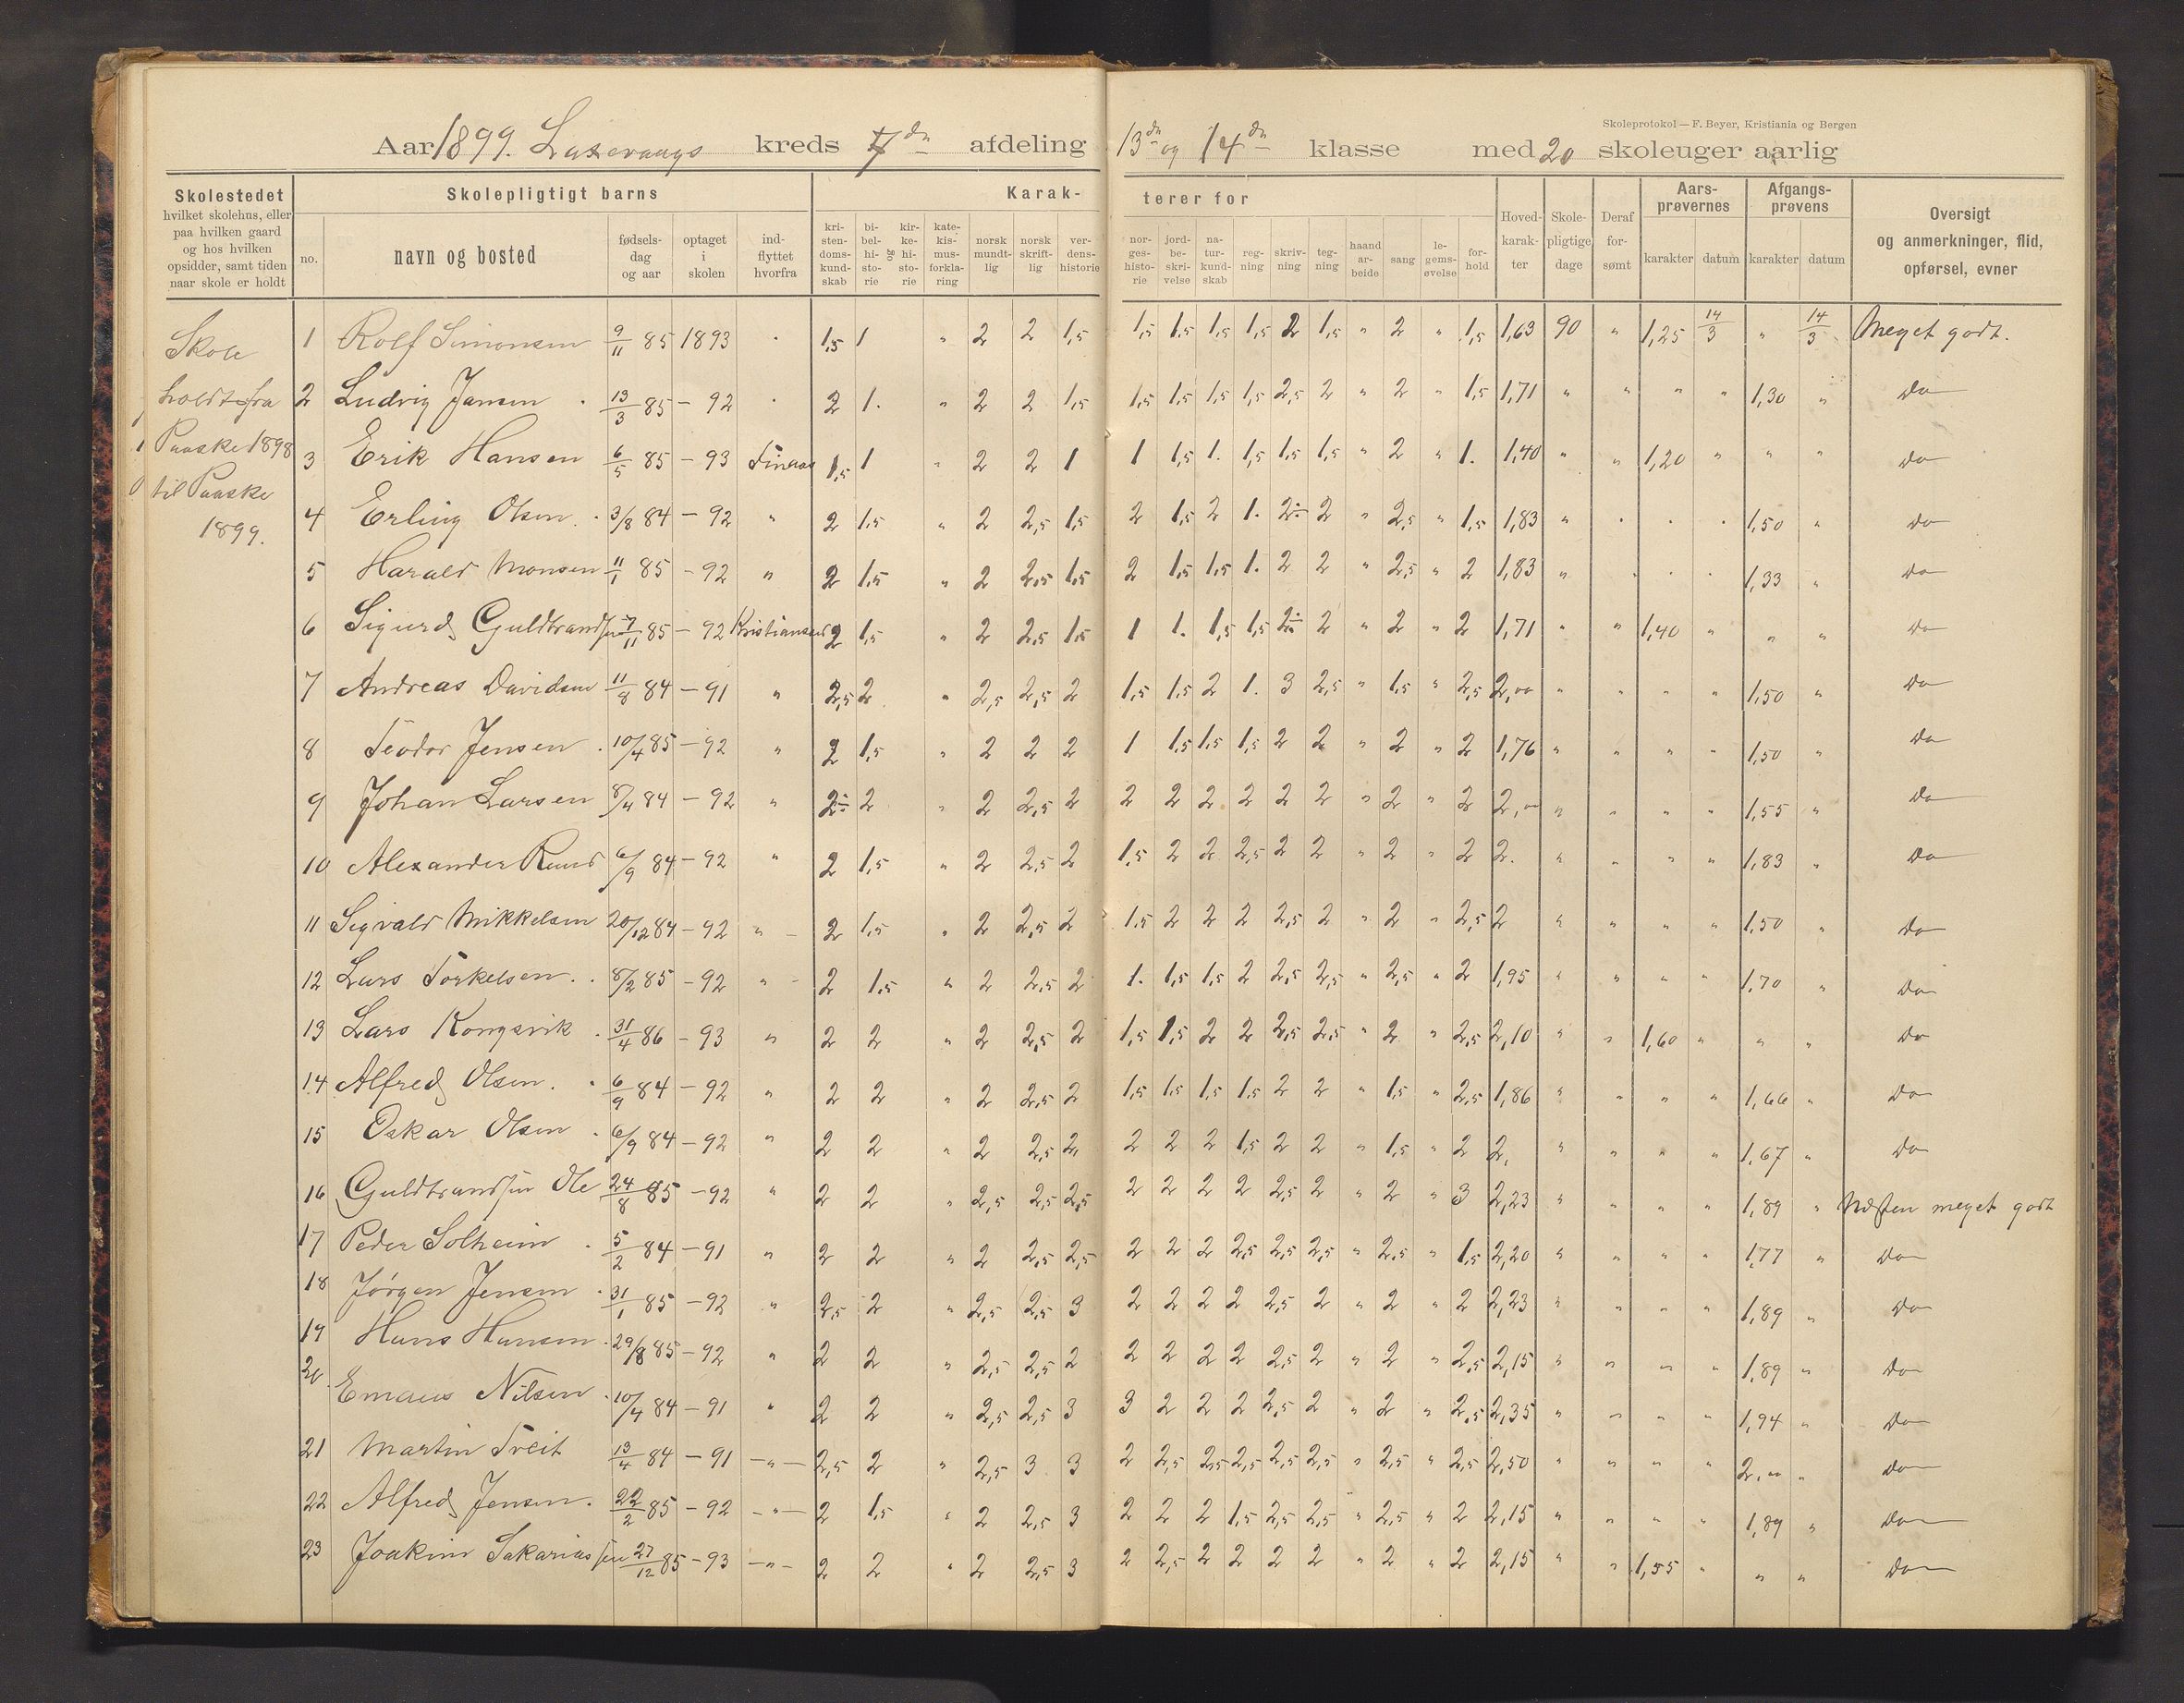 Skoleprotokol — F. Beyer, Kristiania og Bergen
Aar 1899. kreds 7de afdeling 13de og 14de klasse med 20 skoleuger aarlig
Skolestedet
hvilket skolehus, eller
paa hvilken gaard
og hos hvilken
opsidder, samt tiden
naar skole er holdt
Skolepligtigt barns
no.
navn og bosted
fødsels-
dag
og aar
optaget
i
skolen
ind-
flyttet
hvorfra
Karak-
terer for
kri-
sten-
doms-
kund-
skab
bi-
bel-
hi-
sto-
rie
og
kir-
ke-
hi-
sto-
rie
kate-
kis-
mus-
forkla-
ring
norsk
mundt-
lig
norsk
skrift-
lig
ver-
dens-
historie
nor-
ges-
histo-
rie
jord-
be-
skri-
velse
na-
tur-
kund-
skab
reg-
ning
skriv-
ning
teg-
ning
haand
ar-
beide
sang
le-
gems-
øvelse
for-
hold
Hoved-
karak-
ter
Skole-
pligtige
dage
Deraf
for-
sømt
Aars-
prøvernes
karakter datum
Afgangs-
prøvens
karakter datum
Oversigt
og anmerkninger, flid,
opførsel, evner
Skole
holdt fra
Paaske 1898
til Paaske
1899.
1 Rolf Simonsen 9/11 85 1893 " 1,5 1 " 2 2 1,5 1,5 1,5 1,5 1,5 2 1,5 " 2 " 1,5 1,63 90 " 1,25 14/3 " 14/3 Meget godt.
2 Ludvig Jansen 13/3 85 - 92 " 2 1. " 2 2 1,5 1,5 1,5 1,5 1,5 2,5 2 " 2 " 1,5 1,71 " " " " 1,30 " Do
3 Erik Hansen 6/5 85 - 93 1,5 1 " 2 2 1 1 1,5 1. 1,5 1,5 1,5 " 2 " 1. 1,40 " " 1,20 " " " Do
4 Erling Olsen 3/8 84 - 92 " 2 1,5 " 2 2,5 1,5 2 1,5 2 1. 2÷ 2 " 2,5 " 1,5 1,83 " " " " 1,50 " Do
5 Harald Monsen 11/1 85 - 92 " 2 1,5 " 2 2,5 1,5 2 1,5 1,5 1. 2 2 " 2,5 " 2 1,83 " " " " 1,33 " Do
6 Sigurd Guldbrandsen 7/11 85 - 92 Kristiansund 2 1,5 " 2 2,5 1,5 1 1. 1,5 1,5 2÷ 2 " 2 " 2 1,71 " " 1,40 " " " Do
7 Andreas Davidsen 11/8 84 - 91 " 2,5 2 " 2,5 2,5 2 1,5 1,5 2 1. 3 2,5 " 1,5 " 2,5 2,00 " " " " 1,50 " Do
8 Teodor Jensen 10/4 85 - 92 " 2 1,5 " 2 2 2 1 1,5 1,5 1,5 2 2 " 2 " 2 1,76 " " " " 1,50 " Do
9 Johan Larsen 8/4 84 - 92 " 2÷ 2 " 2 2,5 2 2 2 2 2 2 2 " 2 " 2 2,00 " " " " 1,55 " Do
10 Alexander Ruud 6/9 84 - 92 " 2 1,5 " 2 2,5 2 1,5 2 2 2,5 2 2 " 2 " 2 2. " " " " 1,83 " Do
11 Sigvald Mikkelsen 20/12 84 - 92 " 2 1,5 " 2 2,5 2 1,5 2 2 2 2,5 2 " 2 " 2,5 2 " " " " 1,50 " Do
12 Lars Torkelsen. 8/2 85 - 92 " 2 1,5 " 2 2,5 2 1. 1,5 1,5 2 2,5 2,5 " 2,5 " 2 1,95 " " " " 1,70 " Do
13 Lars Kongsvik 31/4 86 - 93 " 2 2 " 2 2,5 2 1,5 1,5 2 2 2,5 2,5 " 2 " 2,5 2,10 " " 1,60 " " " Do
14 Alfred Olsen. 6/9 84 - 92 " 2 2 " 2 2,5 2 1,5 1,5 1,5 1,5 2 2 " 1,5 " 2,5 1,86 " " " " 1,66 " Do
15 Oskar Olsen 6/9 84 - 92 " 2 2 " 2 2,5 2 2 2 2 1,5 2 2 " 1,5 " 2 2. " " " " 1,67 " Do
16 Guldbrandsen Ole 24/8 85 - 92 " 2 2 " 2,5 2,5 2,5 2 2 2 2 2,5 2 " 2 " 3 2,23 " " " " 1,89 " Næsten meget godt
17 Peder Solheim 5/2 84 - 91 " 2 2 " 2 2,5 2,5 2 2 2 2,5 2,5 2,5 " 2,5 " 1,5 2,20 " " " " 1,77 " Do
18 Jørgen Jensen 31/1 85 - 92 " 2,5 2 " 2,5 2,5 3 2 2 2 2 2,5 2 " 2 " 2 2,23 " " " " 1,89 " Do
19 Hans Hansen 29/8 85 - 92 " 2 2 " 2,5 2,5 2 2 2 2 2 2,5 2 " 2 " 2,5 2,15 " " " " 1,89 " Do
20. Emaus Nilsen 10/4 84 - 91 " 2 2 " 2,5 2,5 3 3 2 2 2 2,5 2 " 2 " 2,5 2,35 " " " " 1,94 " Do
21 Martin Tveit 13/4 84 - 91 -"- 2,5 2 " 2,5 3 3 2 2,5 2,5 2,5 2,5 2,5 " 2,5 " 2,5 2,50 " " " " 2,00 " Do
22 Alfred Jensen. 22/2 85 - 92 -"- 2 1,5 " 2 2,5 3 2 2 2 1,5 2,5 2,5 " 2,5 " 2 2,15 " " " " 1,89 " Do
23 Joakim Sakariassen 27/12 85 - 93 -"- 2 2 " 2 2,5 3 2 2,5 2 2 2 2 " 2 " 2 2,15 " " 1,55 " " " Do